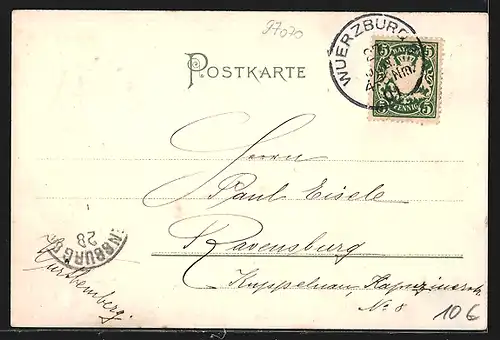 37070
WUERZBURG
BAYERN
5 5
5 PFENNIG 5
POSTKARTE
Herrn
Paul Eisele
Ravensburg
Kuppelnau,
No 8
NSBURG
28
Württemberg.
10 €